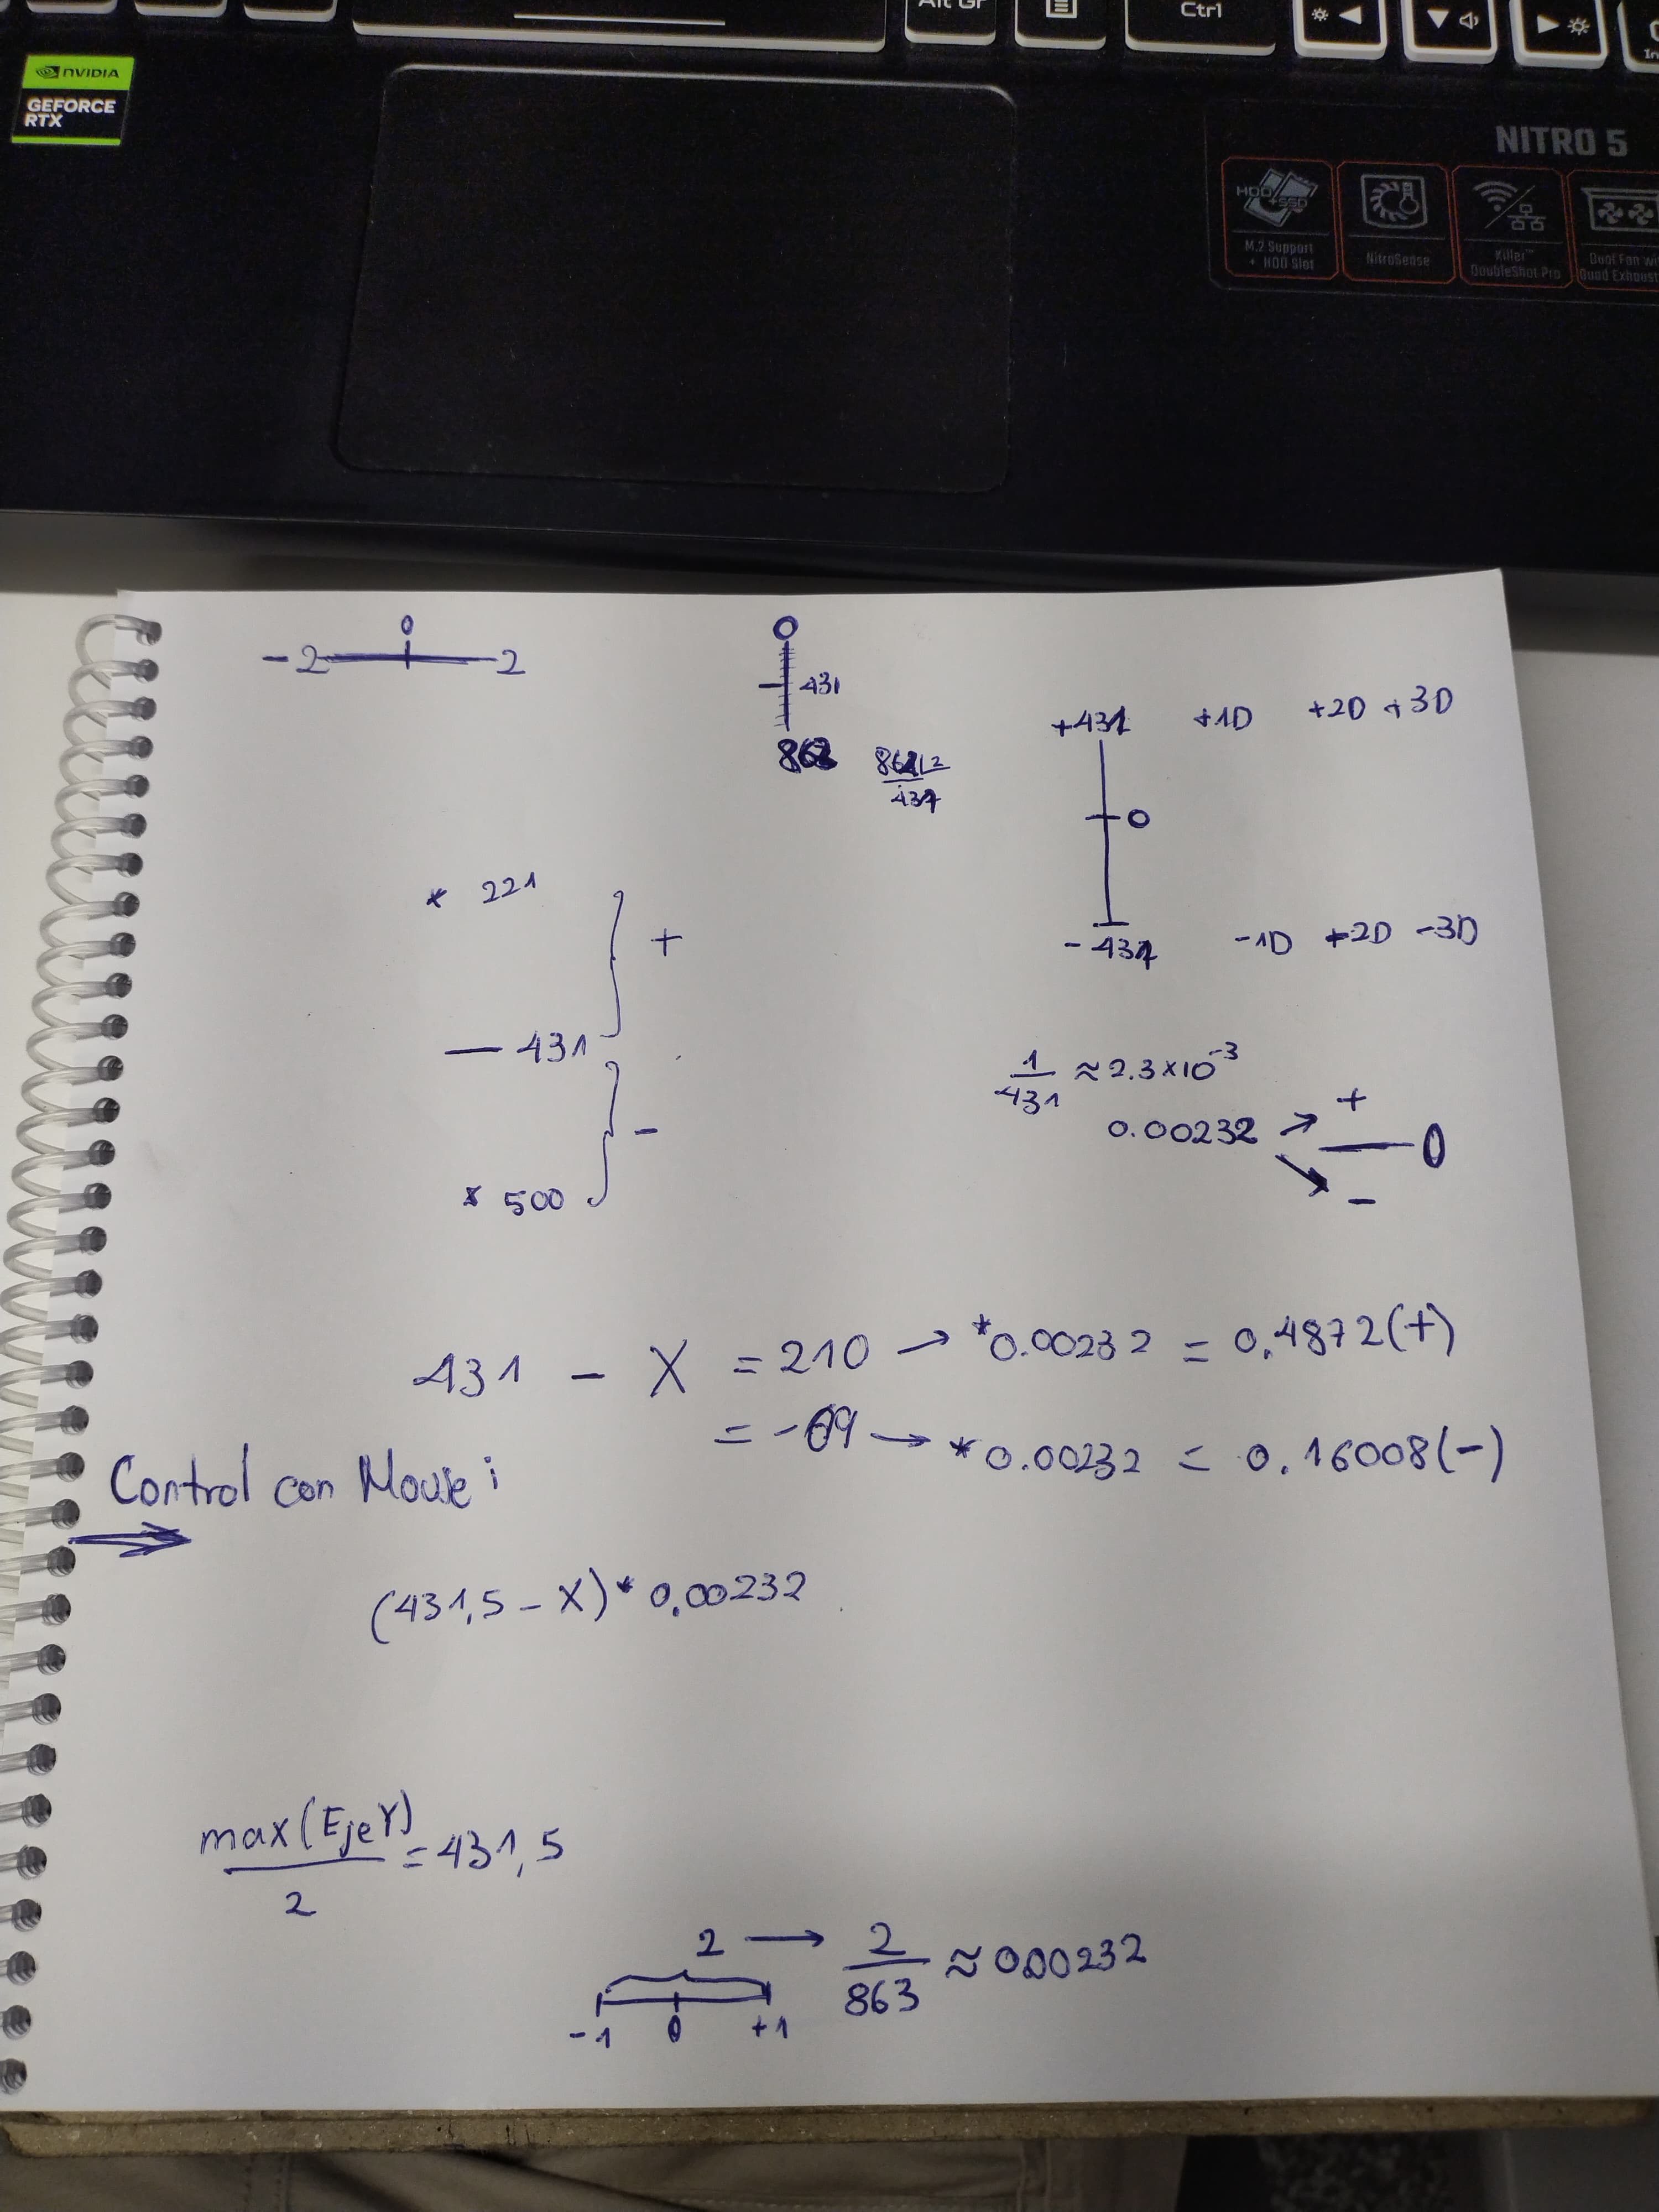 Alt Gr
Ctrl
In
NVIDIA
GEFORCE
RTX
NITRO 5
HDD
+SSD
M.2 Support
+ HDD Slot
NitroSense
Killer™
DoubleShot Pro
Dual Fan wi
Quad Exhaust
0
-2 2
0
431
862
862 2
431
+431 +1D +2D +3D
0
-431 -1D +2D -3D
* 221
+
— 431
-
* 500
1/431 ≈ 2.3×10⁻³
0.00232
+
0
-
431 - X = 210 → *0.00232 = 0.4872(+)
= -69 → *0.00232 = 0.16008(-)
Control con Mouse:
(431,5 - X) * 0,00232
max(EjeY)/2 = 431,5
2 → 2/863 ≈ 0.00232
-1 0 +1